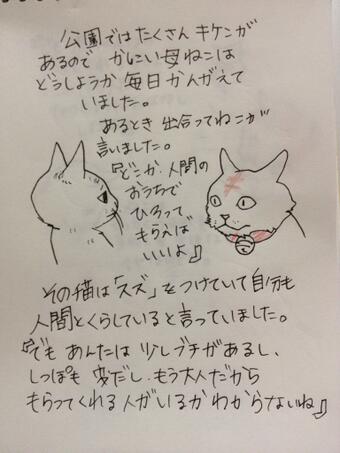 公園ではたくさんキケンが
あるので かにい母ねこは
どうしようか毎日かんがえて
いました。
あるとき 出合ってねこが
言いました。
『どこか人間の
おうちで
ひろって
もらえば
いいよ』
その猫は「スズ」をつけていて自分も
人間とくらしていると言っていました。
『でも あんたは 少しブチがあるし、
しっぽも 変だし、もう大人だから
もらってくれる人がいるかわからないね』